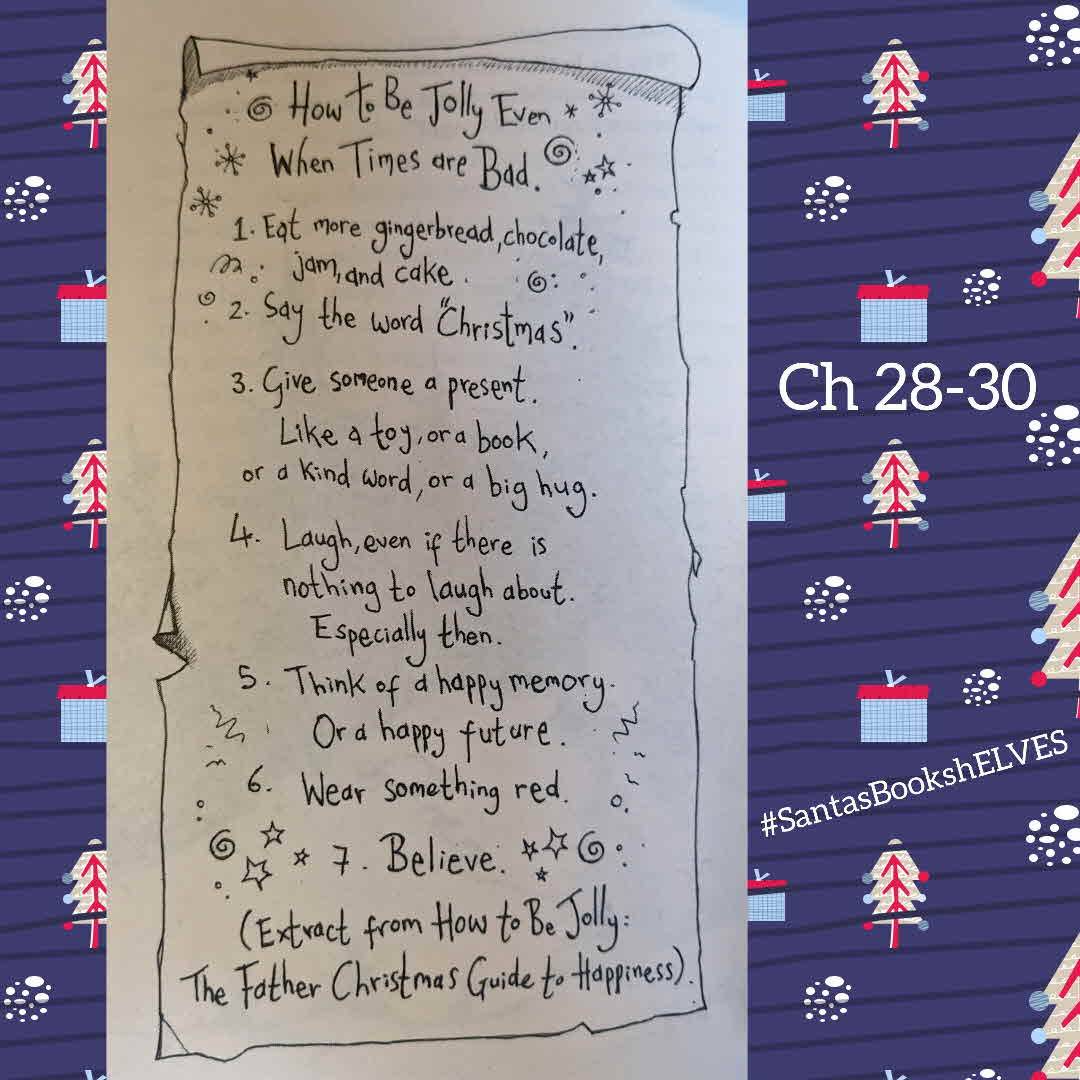 How to Be Jolly Even
When Times are Bad.
1. Eat more gingerbread, chocolate,
jam, and cake.
2. Say the word "Christmas".
3. Give someone a present.
Like a toy, or a book,
or a kind word, or a big hug.
4. Laugh, even if there is
nothing to laugh about.
Especially then.
5. Think of a happy memory.
Or a happy future.
6. Wear something red.
7. Believe.
(Extract from How to Be Jolly:
The Father Christmas Guide to Happiness).
Ch 28-30
#SantasBookshELVES